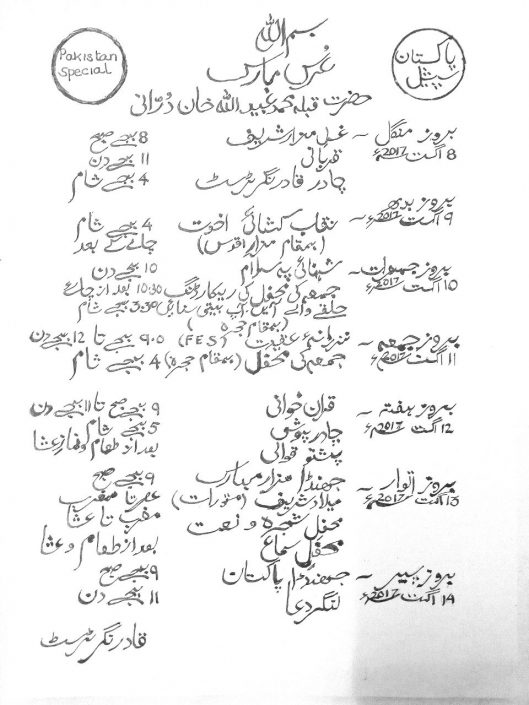 Pakistan
Special
بسم اللہ
پاکستان
سپیشل
عُرس مبارک
حضرت قبلہ محمد عبید اللہ خان دُرّانی
بروز منگل ~ غسل مزار شریف 8 بجے صبح
8 اگست 2017ء قربانی 11 بجے دن
چادر قادر نگر ٹرسٹ 4 بجے شام
بروز بدھ ~ نقاب کشائی اخوت 4 بجے شام
9 اگست 2017ء (بمقام مزار اقدس) چائے کے بعد
بروز جمعرات ~ شہنائی پہ سلام 10 بجے دن
10 اگست 2017ء جمعہ کی محفل کی ریکارڈنگ 10:30 بعد از چائے
حلقے والے آئیں آپ بیتی سنائیں 3:30 بجے شام
(بمقام حجرہ)
بروز جمعہ ~ نذرانہ عقیدت (FES) 9:0 بجے تا 12 بجے دن
11 اگست 2017ء جمعہ کی محفل (بمقام حجرہ) 4 بجے شام
بروز ہفتہ ~ قرآن خوانی 9 بجے صبح تا 11 بجے دن
12 اگست 2017ء چادر پوشی 5 بجے شام
پشتو قوالی بعد از طعام و نماز عشا
بروز اتوار ~ جھنڈا مزار مبارک 9 بجے صبح
13 اگست 2017ء میلاد شریف (مستورات) عصر تا مغرب
محفل شجرہ و نعت مغرب تا عشا
محفل سماع بعد از طعام و عشا
بروز پیر ~ جھنڈا پاکستان 9 بجے صبح
14 اگست 2017ء لنگر دعا 11 بجے دن
قادر نگر ٹرسٹ